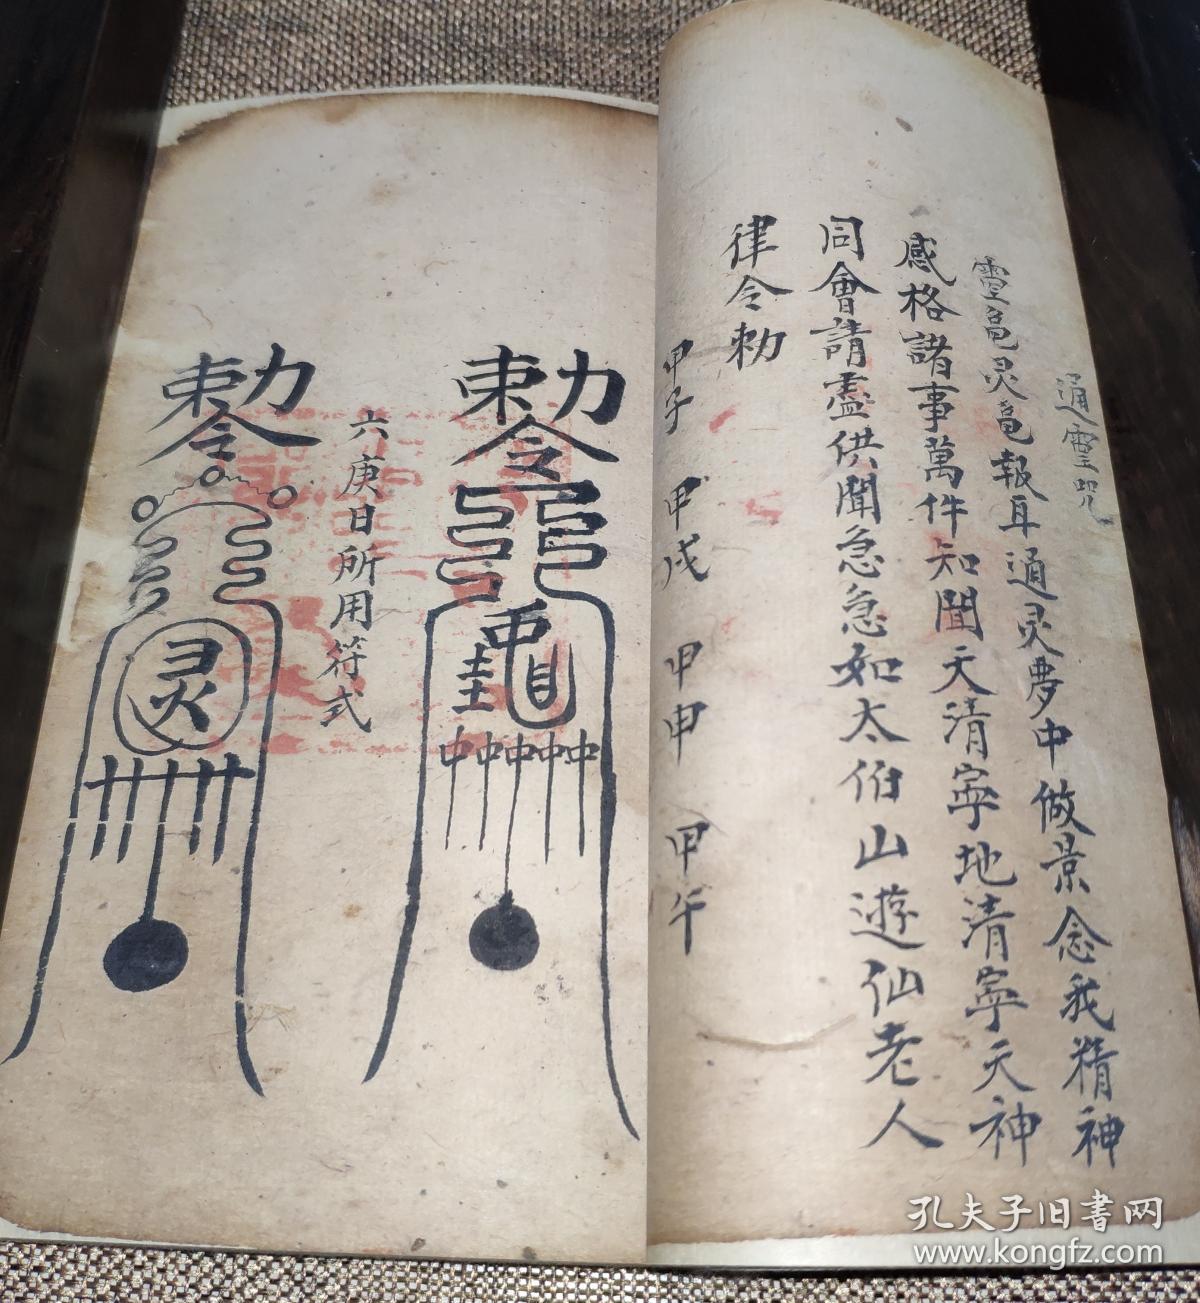 通靈咒
靈龟灵龟報耳通灵夢中做景念我精神
感格諸事萬件知聞天清寧地清寧天神
同會請盡供聞急急如太伯山遊仙老人
律令勅
甲子 甲戌 甲申 甲午
勅令
中中中中中
六庚日所用符式
勅令
灵
孔夫子旧书网
www.kongfz.com